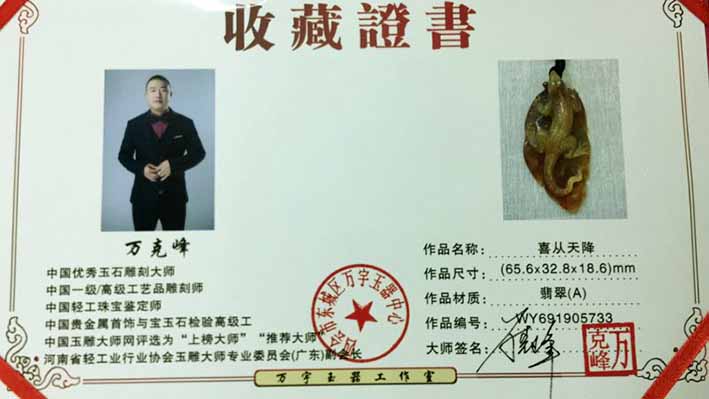 收藏證書
万克峰
中国优秀玉石雕刻大师
中国一级/高级工艺品雕刻师
中国轻工珠宝鉴定师
中国贵金属首饰与宝玉石检验高级工
中国玉雕大师网评选为“上榜大师”“推荐大师”
河南省轻工业行业协会玉雕大师专业委员会(广东)副会长
四会市东城区万宇玉器中心
作品名称: 喜从天降
作品尺寸: (65.6x32.8x18.6)mm
作品材质: 翡翠(A)
作品编号: WY691905733
大师签名:
万克峰
万宇玉器工作室